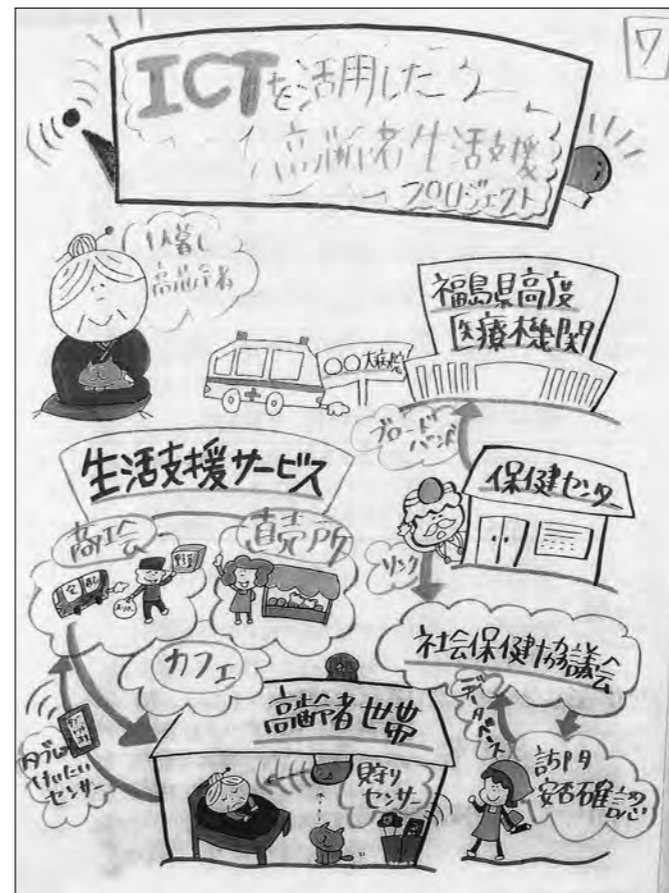 7
ICTを活用した
高齢者生活支援
プロジェクト
1人暮し
高齢者
福島県高度
医療機関
○○大病院
ブロード
バンド
生活支援サービス
保健センター
商工会
直売所
野菜
宅配
リンク
カフェ
社会保健協議会
高齢者世帯
データ
タブレット
けいたい
センサー
見守り
センサー
訪問
安否確認